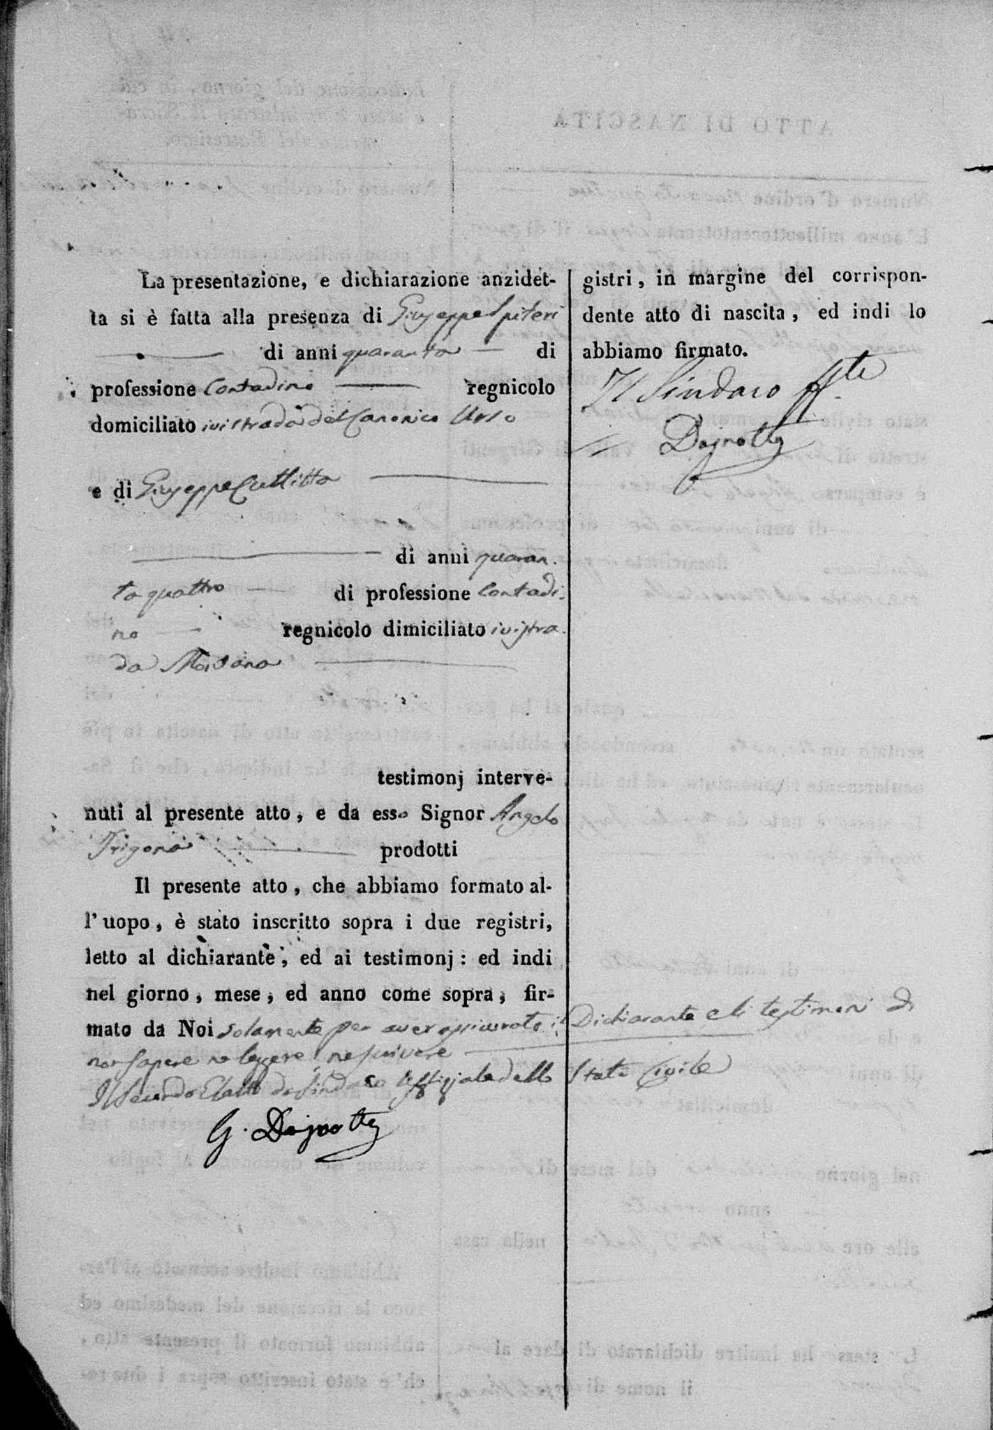 La presentazione, e dichiarazione anzidet-
ta si è fatta alla presenza di Giuseppe Spiteri
di anni quaranta di
professione Contadino regnicolo
domiciliato ivi strada del Canonico Urso
e di Giuseppe Cullitta
di anni quaran-
ta quattro di professione Contadi-
no regnicolo dimiciliato ivi stra-
da
testimonj interve-
nuti al presente atto, e da esso Signor Angelo
Trigona prodotti
Il presente atto, che abbiamo formato al-
l'uopo, è stato inscritto sopra i due registri,
letto al dichiarante, ed ai testimonj: ed indi
nel giorno, mese, ed anno come sopra, fir-
mato da Noi solamente per aver assicurato il Dichiarante e li testimonj di
non sapere ne leggere, ne scrivere
Il Secondo Eletto da Sindaco Uffiziale dello Stato Civile
G. Dajnotto
gistri, in margine del corrispon-
dente atto di nascita, ed indi lo
abbiamo firmato.
Il Sindaco ff.te
Dajnotto